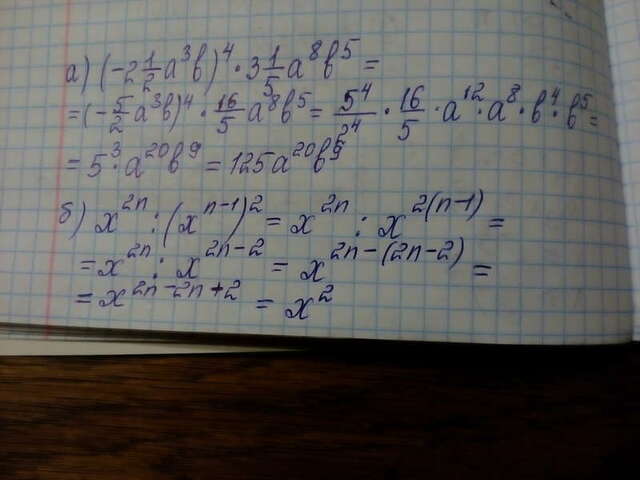 а) (-2 1/2 a³b)⁴ · 3 1/5 a⁸b⁵ =
= (-5/2 a³b)⁴ · 16/5 a⁸b⁵ = 5⁴/2⁴ · 16/5 · a¹² · a⁸ · b⁴ · b⁵ =
= 5³ · a²⁰b⁹ = 125a²⁰b⁹
б) x²ⁿ : (xⁿ⁻¹)² = x²ⁿ : x²⁽ⁿ⁻¹⁾ =
= x²ⁿ : x²ⁿ⁻² = x²ⁿ⁻⁽²ⁿ⁻²⁾ =
= x²ⁿ⁻²ⁿ⁺² = x²